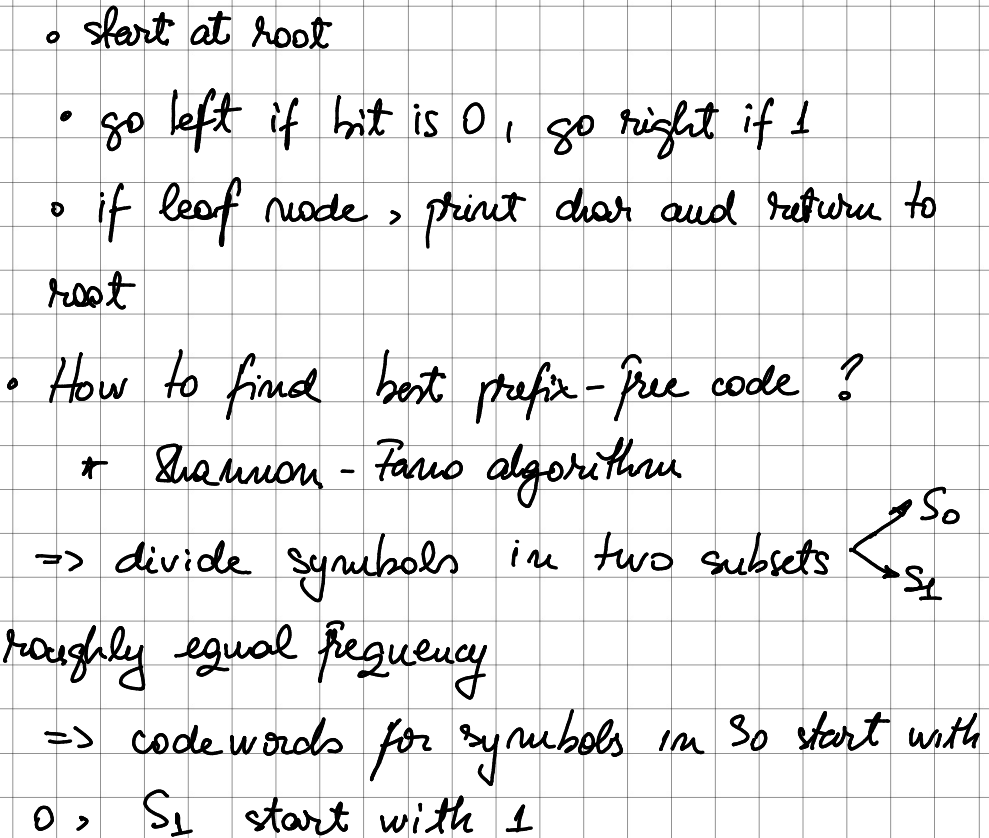 • start at root
• go left if bit is 0, go right if 1
• if leaf node, print char and return to
root
• How to find best prefix-free code?
* Shannon-Fano algorithm
S0
=> divide symbols in two subsets
S1
roughly equal frequency
=> codewords for symbols in S0 start with
0, S1 start with 1